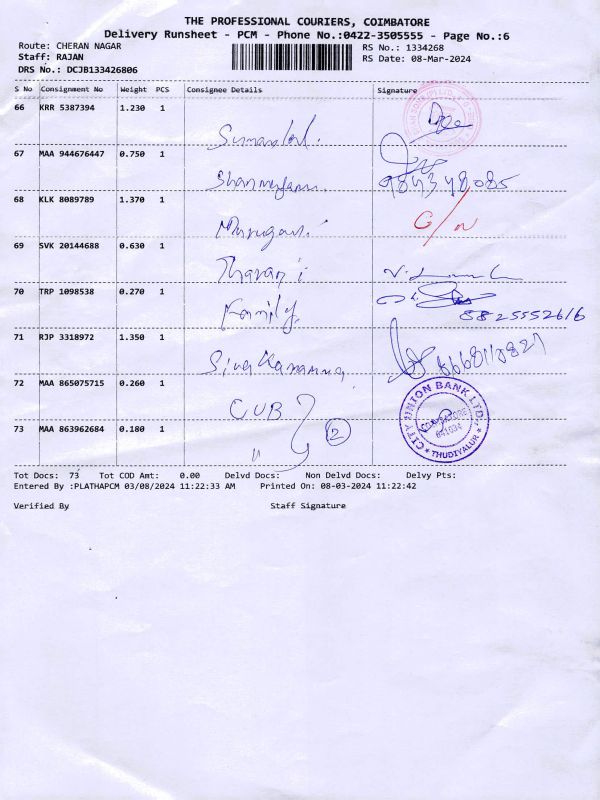 THE PROFESSIONAL COURIERS, COIMBATORE
Delivery Runsheet - PCM - Phone No.:0422-3505555 - Page No.:6
Route: CHERAN NAGAR RS No.: 1334268
Staff: RAJAN RS Date: 08-Mar-2024
DRS No.: DCJB133426806
S No Consignment No Weight PCS Consignee Details Signature
66 KRR 5387394 1.230 1
67 MAA 944676447 0.750 1
68 KLK 8089789 1.370 1
Murugan C/N
69 SVK 20144688 0.630 1
Tharani
70 TRP 1098538 0.270 1
Family 8825552616
71 RJP 3318972 1.350 1
72 MAA 865075715 0.260 1
CUB CITY UNION BANK LTD. COIMBATORE 641034 ★ THUDIYALUR ★
73 MAA 863962684 0.180 1
" 2
Tot Docs: 73 Tot COD Amt: 0.00 Delvd Docs: Non Delvd Docs: Delvy Pts:
Entered By :PLATHAPCM 03/08/2024 11:22:33 AM Printed On: 08-03-2024 11:22:42
Verified By Staff Signature